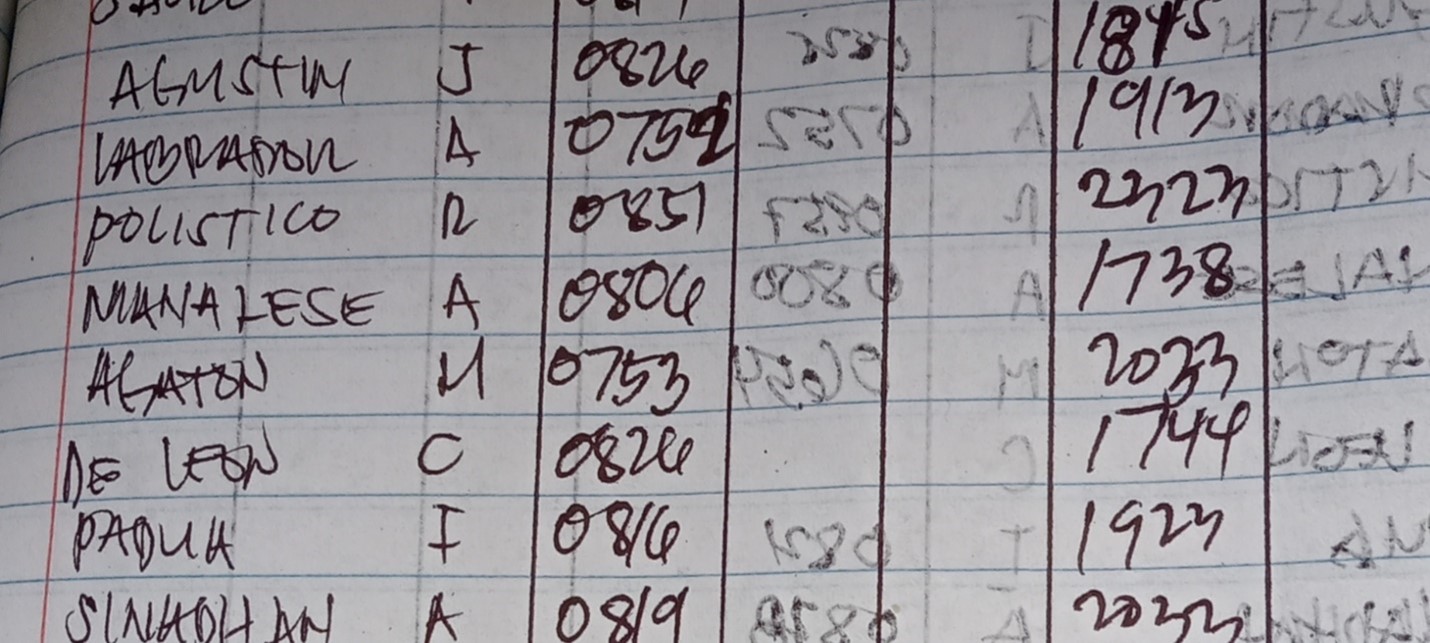 AGUSTIN J 0826 1845
LABRADOR A 0752 1913
POLISTICO R 0851 2323
MANALESE A 0806 1738
AGATON M 0753 2033
DE LEON C 0826 1744
PADUA I 0816 1923
SINADHAN A 0819 2033